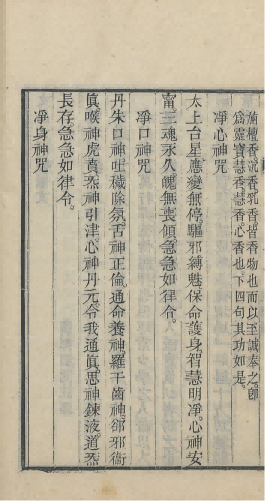 旃檀香乳香皆香物也而以至誠奉之卽
爲靈寶慧香慧香心香也下四句其功如是
凈心神咒
太上台星應變無停驅邪縛魅保命護身智慧明凈心神安
甯三魂永久魄無喪傾急急如律令。
凈口神咒
丹朱口神吐穢除氛舌神正倫通命養神羅千齒神卻邪衞
眞喉神虎賁炁神引津心神丹元令我通眞思神鍊液道炁
長存急急如律令。
凈身神咒